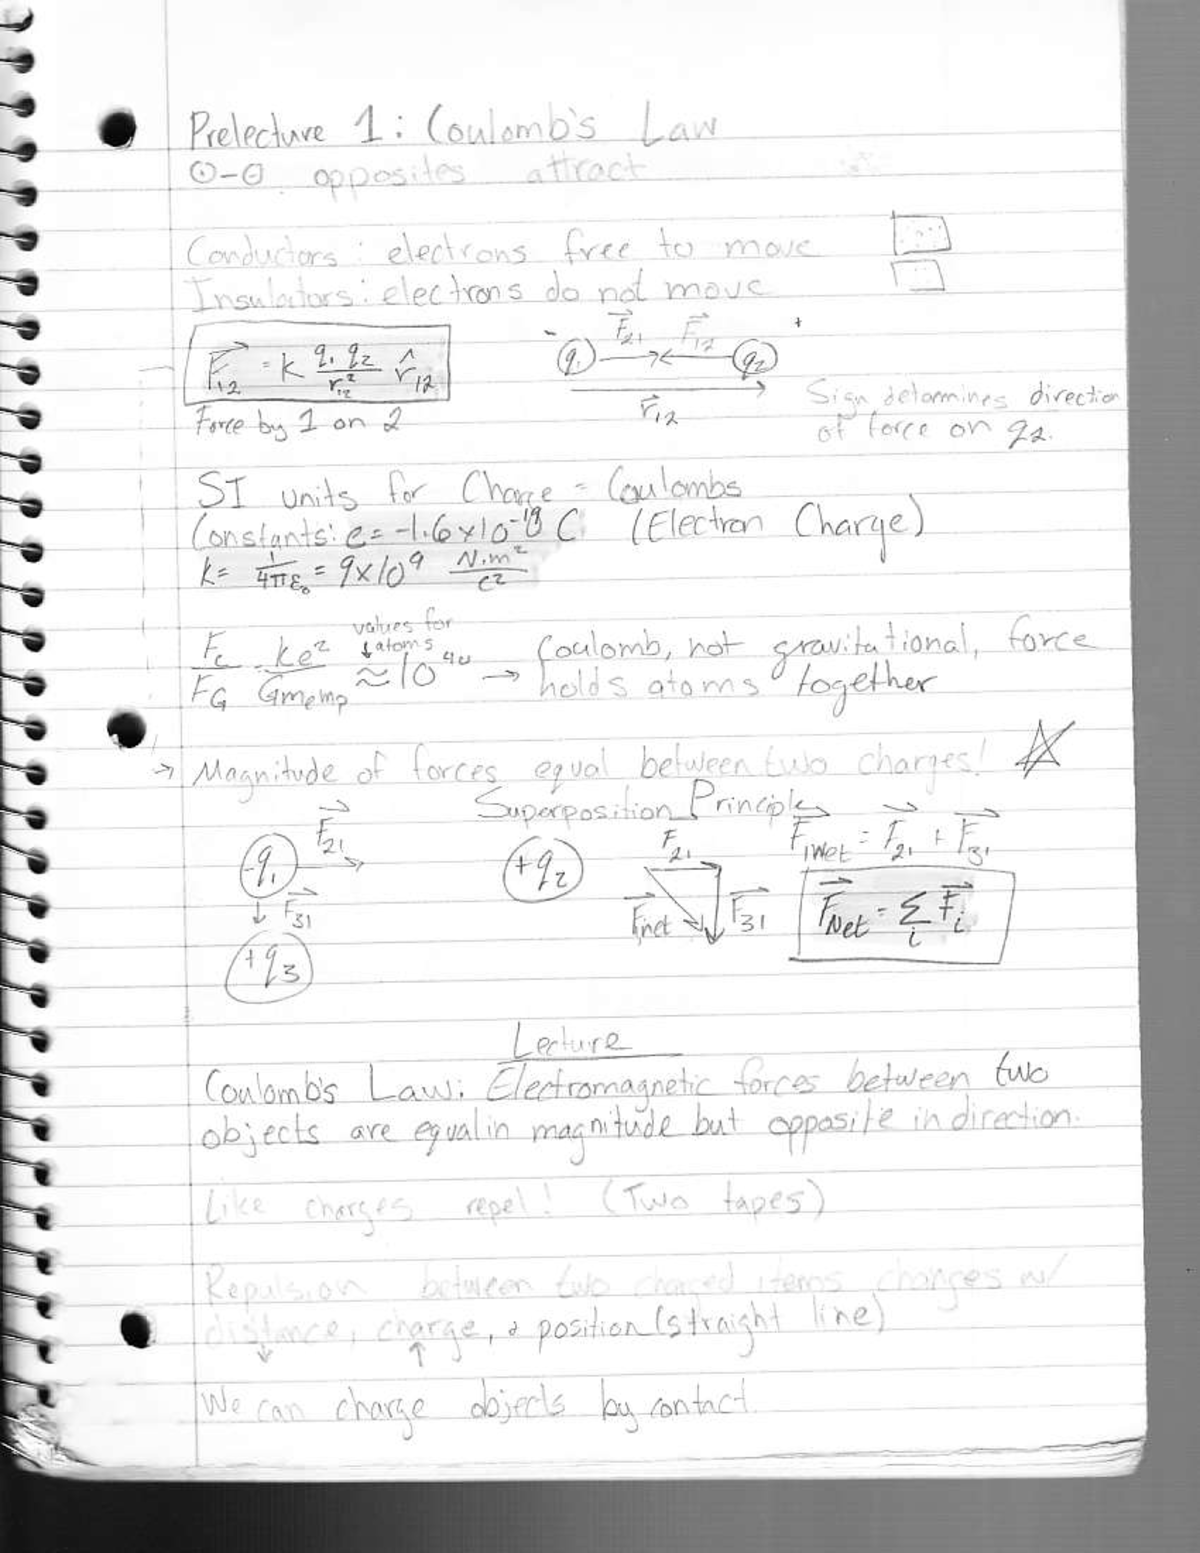 Prelecture 1: Coulomb's Law
⊙-⊖ opposites attract
Conductors: electrons free to move
Insulators: electrons do not move
- F⃗₂₁ F⃗₁₂ +
F⃗₁₂ = k q₁q₂/r₁₂² r̂₁₂
q₁ q₂
r⃗₁₂
Force by 1 on 2
Sign determines direction
of force on q₂.
SI units for Charge = Coulombs
Constants: e = -1.6×10⁻¹⁹ C (Electron Charge)
k = 1/4πε₀ = 9×10⁹ N·m²/C²
values for
↓atoms
F_C/F_G ke²/Gmₑmₚ ≈ 10⁴⁰ → Coulomb, not gravitational, force
holds atoms together
→ Magnitude of forces equal between two charges! ☆
Superposition Principle
F⃗₂₁
-q₁
F⃗₃₁
+q₃
+q₂
F₂₁
F⃗₁net
F⃗₃₁
F⃗₁Net = F⃗₂₁ + F⃗₃₁
F⃗Net = Σᵢ F⃗ᵢ
Lecture
Coulomb's Law: Electromagnetic forces between two
objects are equal in magnitude but opposite in direction.
Like charges repel! (Two tapes)
Repulsion between two charged items changes w/
distance, charge, & position (straight line)
↓ ↑
We can charge objects by contact.